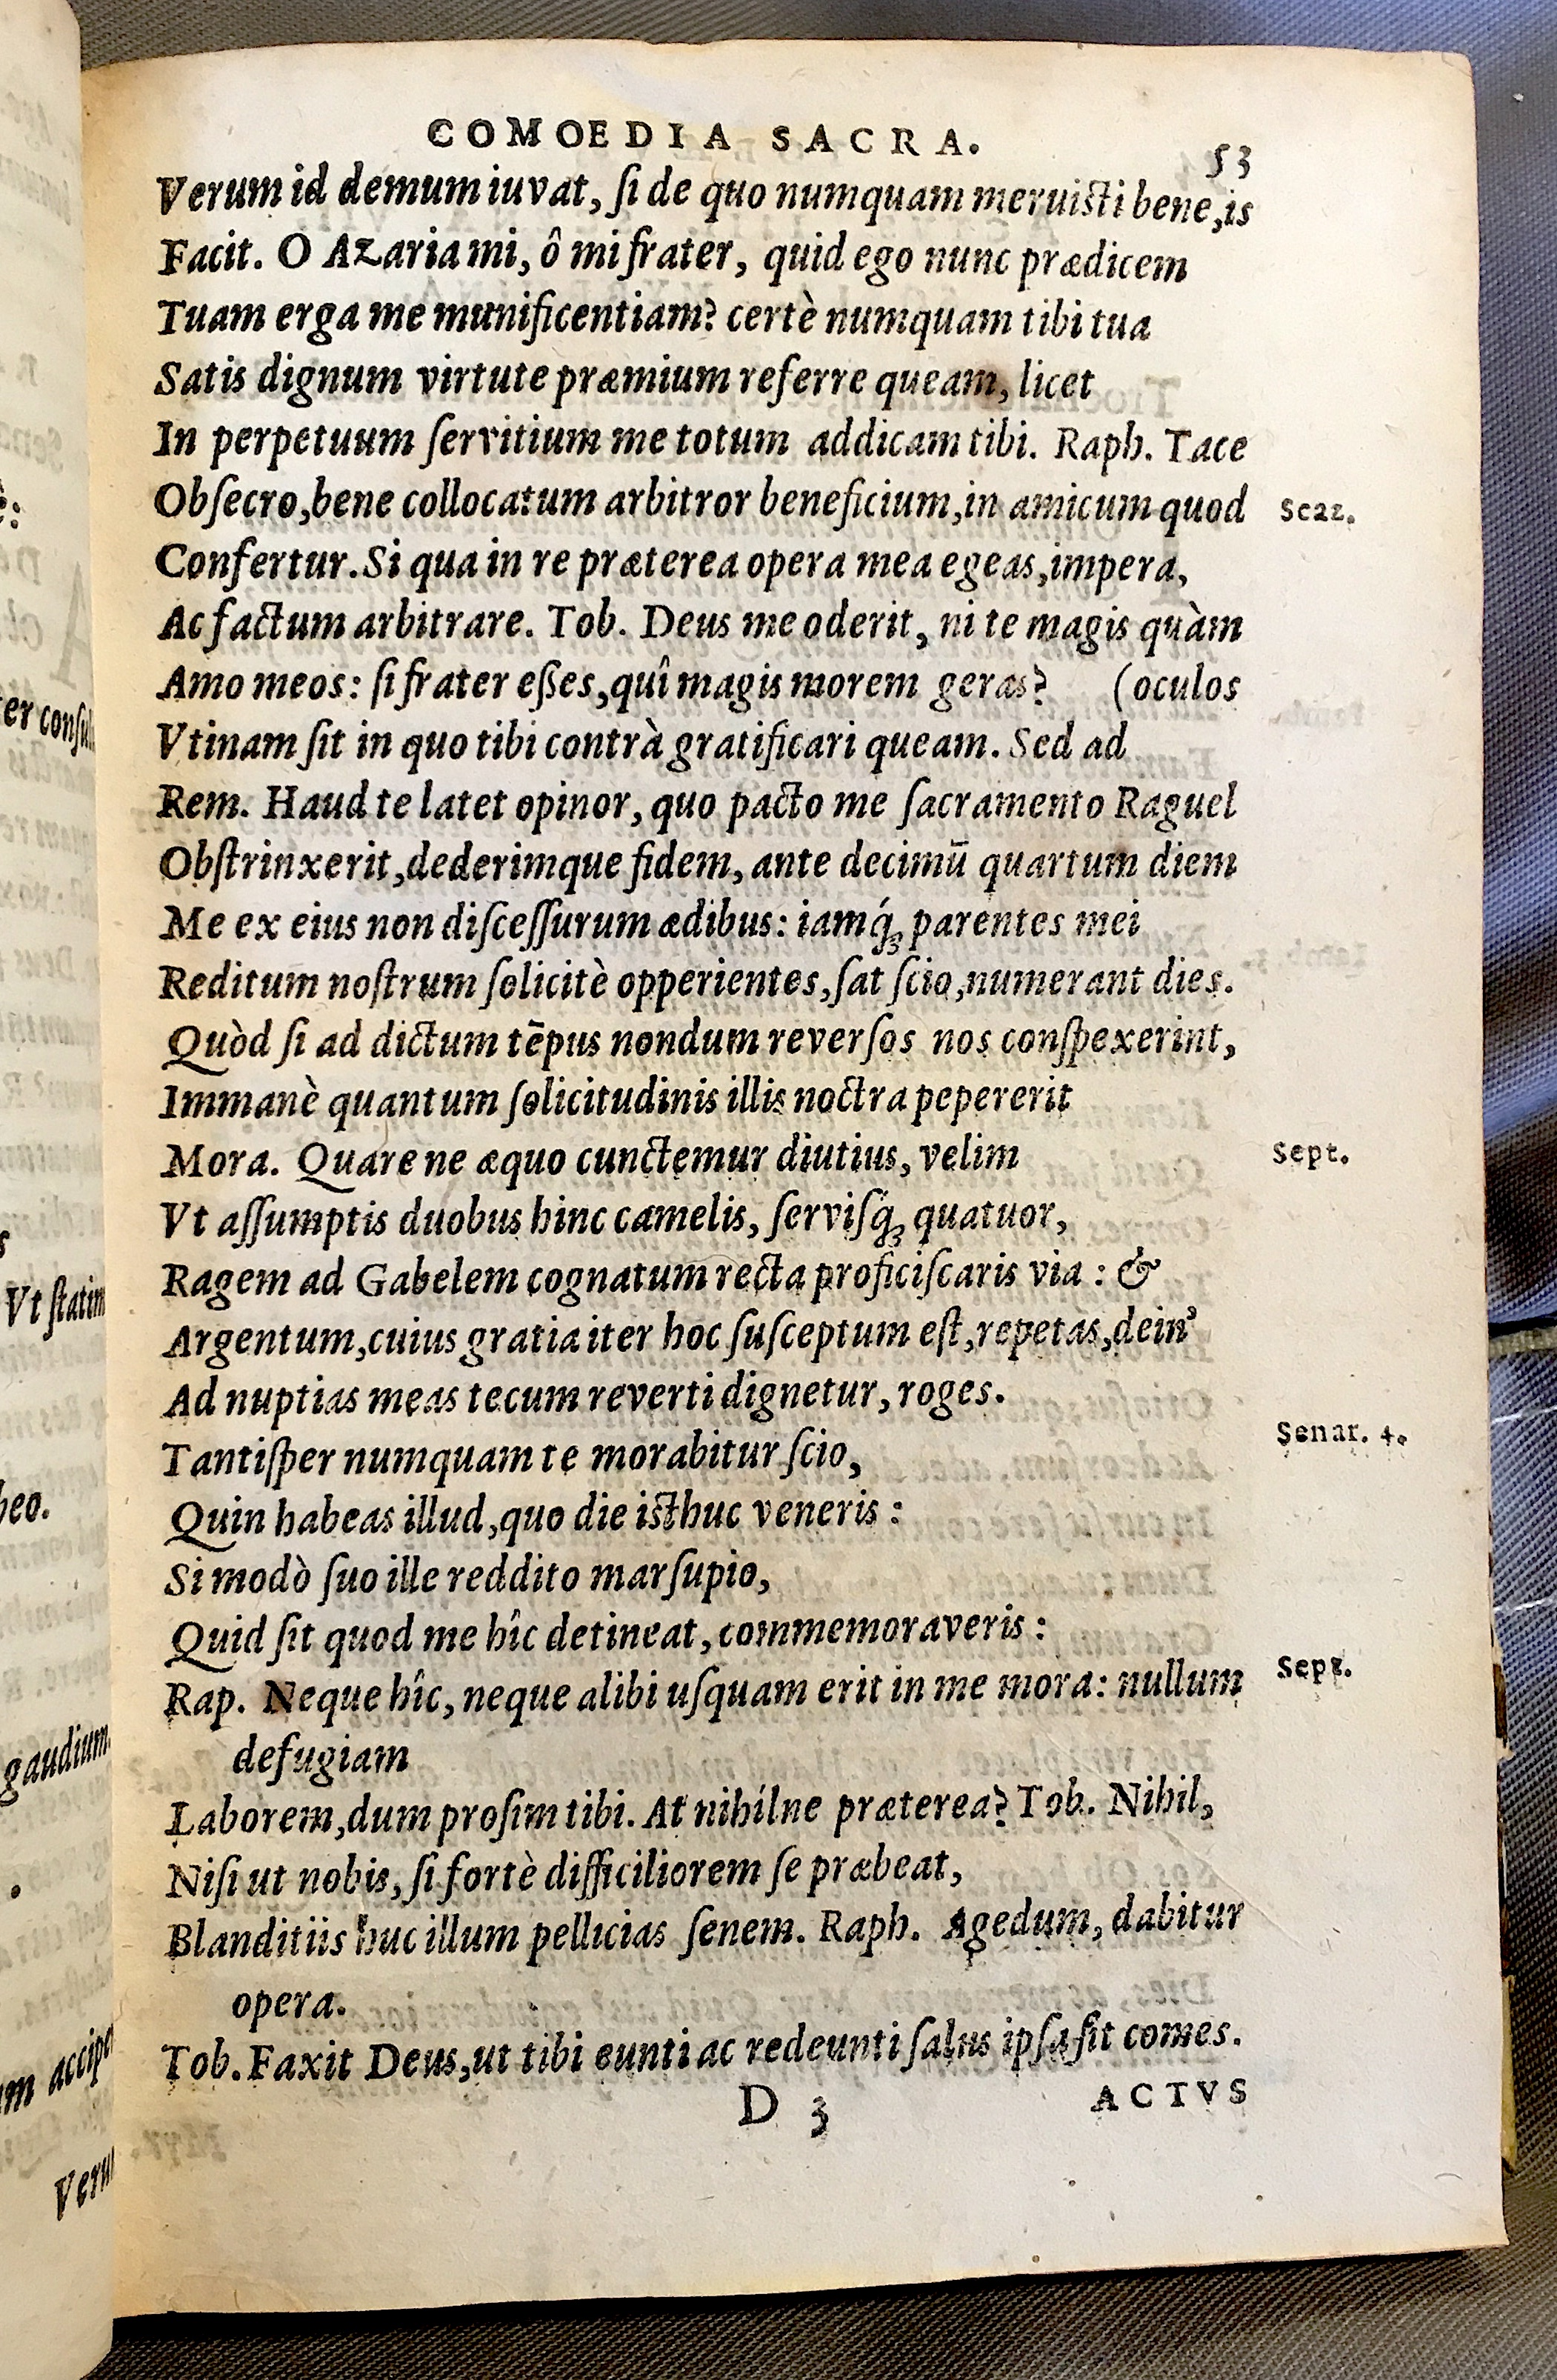 COMOEDIA SACRA.
53
Verum id demum iuvat, ſi de quo numquam meruiſti bene, is
Facit. O Azaria mi, ô mi frater, quid ego nunc prædicem
Tuam erga me munificentiam? certè numquam tibi tua
Satis dignum virtute præmium referre queam, licet
In perpetuum ſervitium me totum addicam tibi. Raph. Tace
Obſecro, bene collocatum arbitror beneficium, in amicum quod
Scaz.
Confertur. Si qua in re præterea opera mea egeas, impera,
Ac factum arbitrare. Tob. Deus me oderit, ni te magis quàm
Amo meos: ſi frater eßes, quî magis morem geras? (oculos
Vtinam ſit in quo tibi contrà gratificari queam. Sed ad
Rem. Haud te latet opinor, quo pacto me ſacramento Raguel
Obſtrinxerit, dederimque fidem, ante decimū quartum diem
Me ex eius non diſceſſurum ædibus: iamq́ꝫ parentes mei
Reditum noſtrum ſolicitè opperientes, ſat ſcio, numerant dies.
Quòd ſi ad dictum tēpus nondum reverſos nos conſpexerint,
Immanè quantum ſolicitudinis illis noctra pepererit
Mora. Quare ne æquo cunctemur diutius, velim
Sept.
Vt aſſumptis duobus hinc camelis, ſerviſq́ꝫ quatuor,
Ragem ad Gabelem cognatum recta proficiſcaris via : &
Argentum, cuius gratia iter hoc ſuſceptum eſt, repetas, dein'
Ad nuptias meas tecum reverti dignetur, roges.
Tantiſper numquam te morabitur ſcio,
Senar. 4.
Quin habeas illud, quo die iſthuc veneris :
Si modò ſuo ille reddito marſupio,
Quid ſit quod me hîc detineat, commemoraveris :
Rap. Neque hîc, neque alibi uſquam erit in me mora: nullum
Sept.
defugiam
Laborem, dum proſim tibi. At nihílne præterea? Tob. Nihil,
Niſi ut nobis, ſi fortè difficiliorem ſe præbeat,
Blanditiis huc illum pellicias ſenem. Raph. Agedum, dabitur
opera.
Tob. Faxit Deus, ut tibi eunti ac redeunti ſalus ipſa ſit comes.
D 3
ACTVS
Vt ſtatim
gaudium.